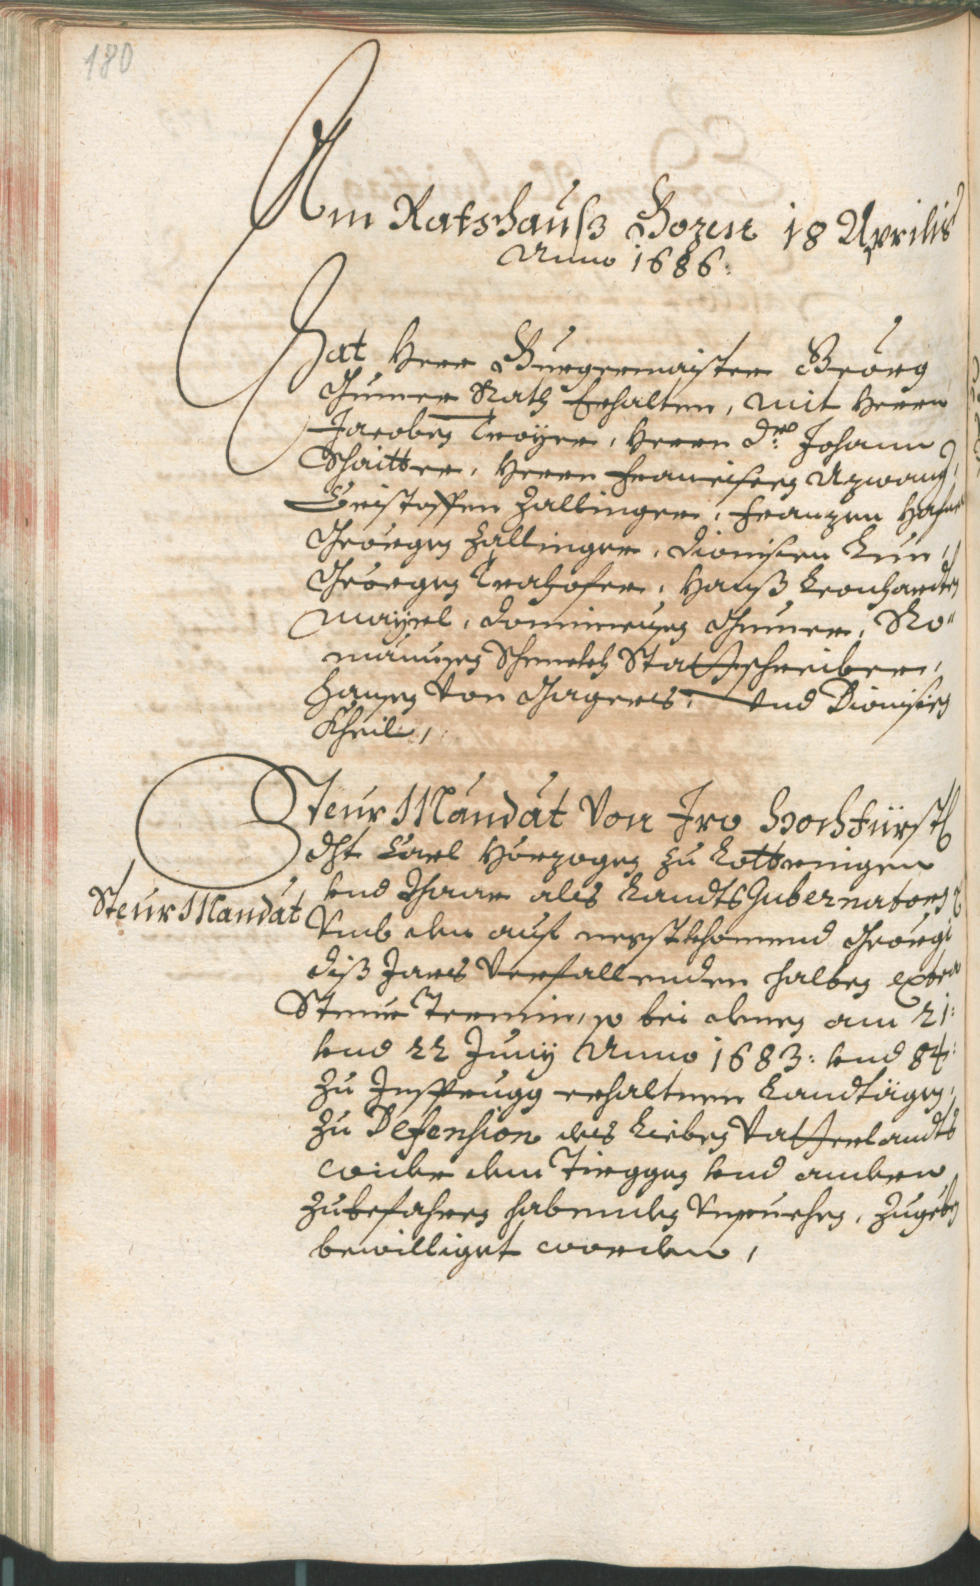 180
Am Ratshauß Bozen 18 Aprilis
Anno 1686:
Hat Herr Burgermaister Georg
Gumer Rath Erhalten, mit Herrn
Jacoben Troyer, Herrn Dr: Johann
Schaitter, Herrn Francischen Azwang,
Cristoffen Zallinger, Franzen Hafner
Georgen Zallinger, Dionisien Kun,
Georgen Trahofer, Hanß Leonharden
Mayrl, Dominicusen Gumer, Ro"
manusen Schmelch Stattschreiber,
Hansen von Jageres, und Dionisien
Kheil,
Steur Mandat Von Iro Hochfürstl
Dht Carl Hörzogen zu Lottringen
Steur Mandat
und Baar als Landts Gubernatorn
Umb den auf negstkhomend Georgi
diß Jars Verfallenden halben extra
Steur Termin, so bei denen am 21:
und 22 Juny Anno 1683: und 84:
zu Insprugg erhaltnen Landtägen,
zu Defension des Lieben Vatterlandts
wider den Tirggen und andern
zubefahren habenden, zugeben
bewilliget worden,